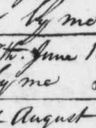 by me
th. June 1
by me
August